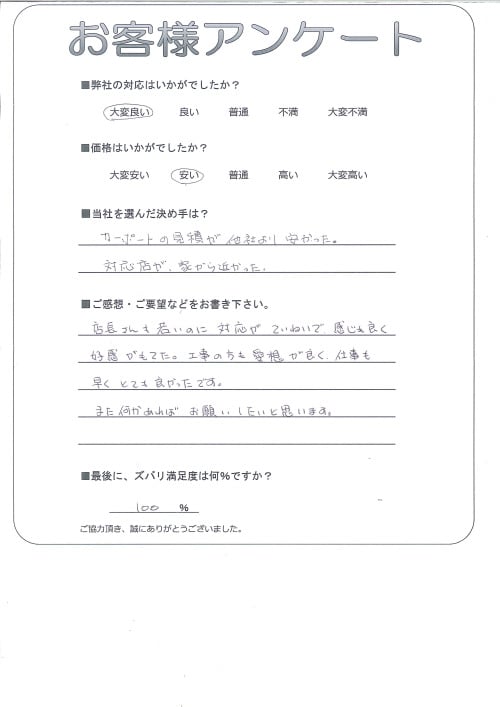 お客様アンケート
■弊社の対応はいかがでしたか?
大変良い 良い 普通 不満 大変不満
■価格はいかがでしたか?
大変安い 安い 普通 高い 大変高い
■当社を選んだ決め手は?
カーポートの見積が他社より安かった。
対応店が、家から近かった。
■ご感想・ご要望などをお書き下さい。
店長さんも若いのに対応がていねいで、感じも良く
好感がもてた。工事の方も愛想が良く、仕事も
早くとても良かったです。
また何かあればお願いしたいと思います。
■最後に、ズバリ満足度は何%ですか?
100 %
ご協力頂き、誠にありがとうございました。